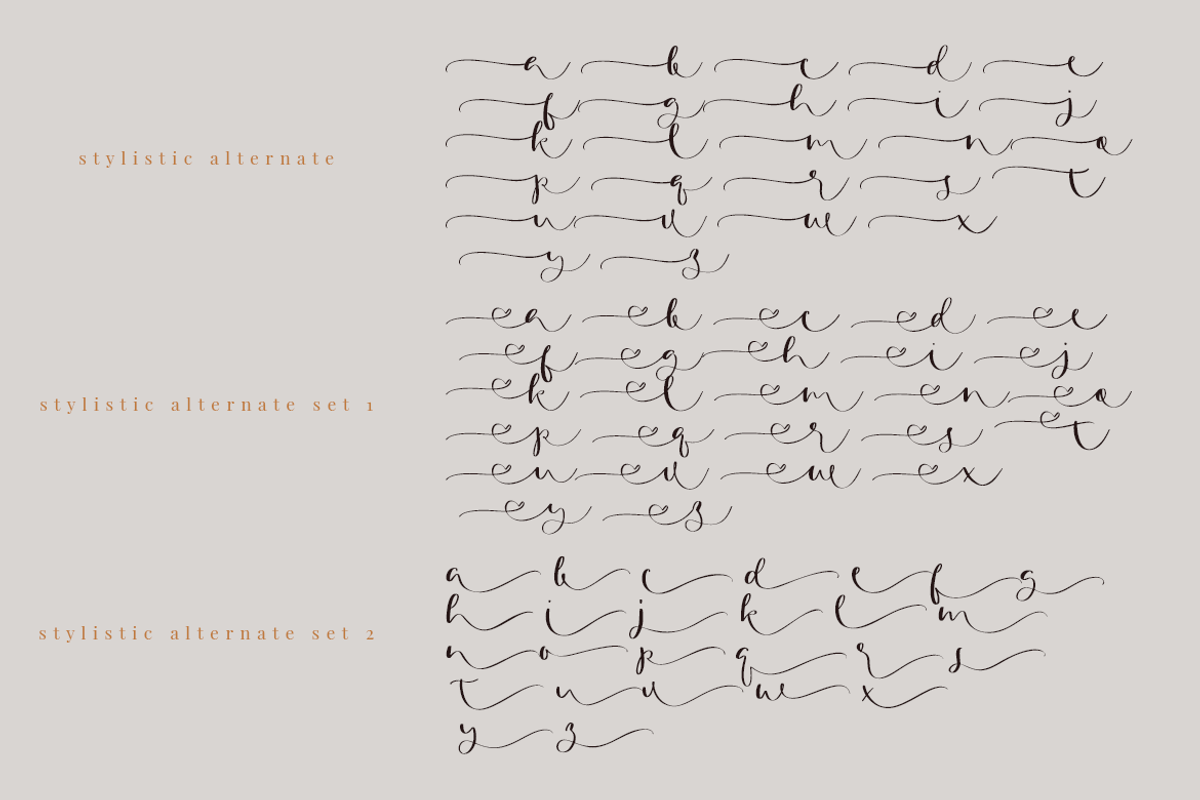 stylistic alternate
a b c d e
f g h i j
k l m n o
p q r s t
u v w x
y z
stylistic alternate set 1
a b c d e
f g h i j
k l m n o
p q r s t
u v w x
y z
stylistic alternate set 2
a b c d e f g
h i j k l m
n o p q r s
t u v w x
y z